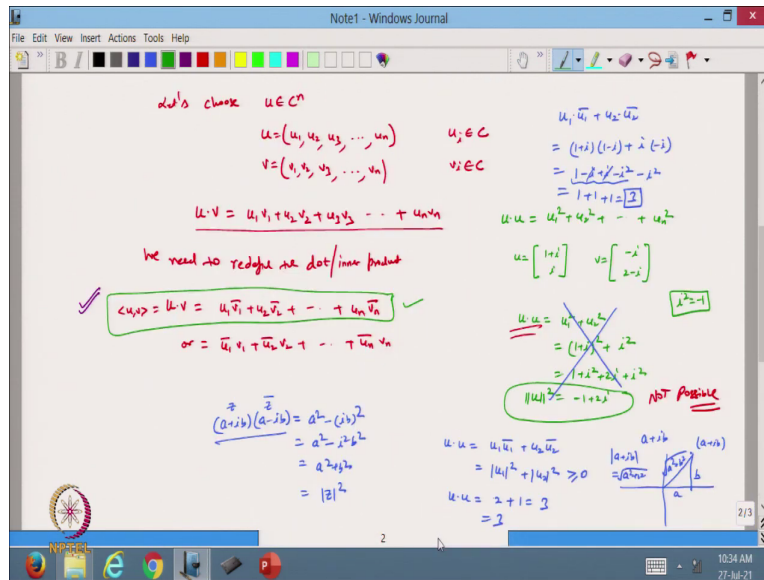 Note1 - Windows Journal
File Edit View Insert Actions Tools Help
Let's choose u ∈ Cⁿ
u = (u₁, u₂, u₃, ..., uₙ) uᵢ ∈ C
v = (v₁, v₂, v₃, ..., vₙ) vᵢ ∈ C
u·v = u₁v₁ + u₂v₂ + u₃v₃ --- + uₙvₙ
We need to redefine the dot/inner product
<u,v> = u·v = u₁v̅₁ + u₂v̅₂ + --- + uₙv̅ₙ
or = u̅₁v₁ + u̅₂v₂ + --- + u̅ₙvₙ
z z̅
(a+ib)(a-ib) = a² - (ib)²
= a² - i²b²
= a² + b²
= |z|²
u₁·u̅₁ + u₂·u̅₂
= (1+i)(1-i) + i(-i)
= 1 - i + i - i² - i²
= 1 + 1 + 1 = 3
u·u = u₁² + u₂² + -- + uₙ²
u = [1+i i] v = [-i 2-i]
i² = -1
u·u = u₁² + u₂²
= (1+i)² + i²
= 1 + i² + 2i + i²
||u||² = -1 + 2i NOT Possible
u·u = u₁u̅₁ + u₂u̅₂
= |u₁|² + |u₂|² ≥ 0
u·u = 2 + 1 = 3
= 3
a+ib
(a+ib)
|a+ib|
= √a²+b²
√a²+b²
b
a
2/3
NPTEL
2
10:34 AM
27-Jul-21